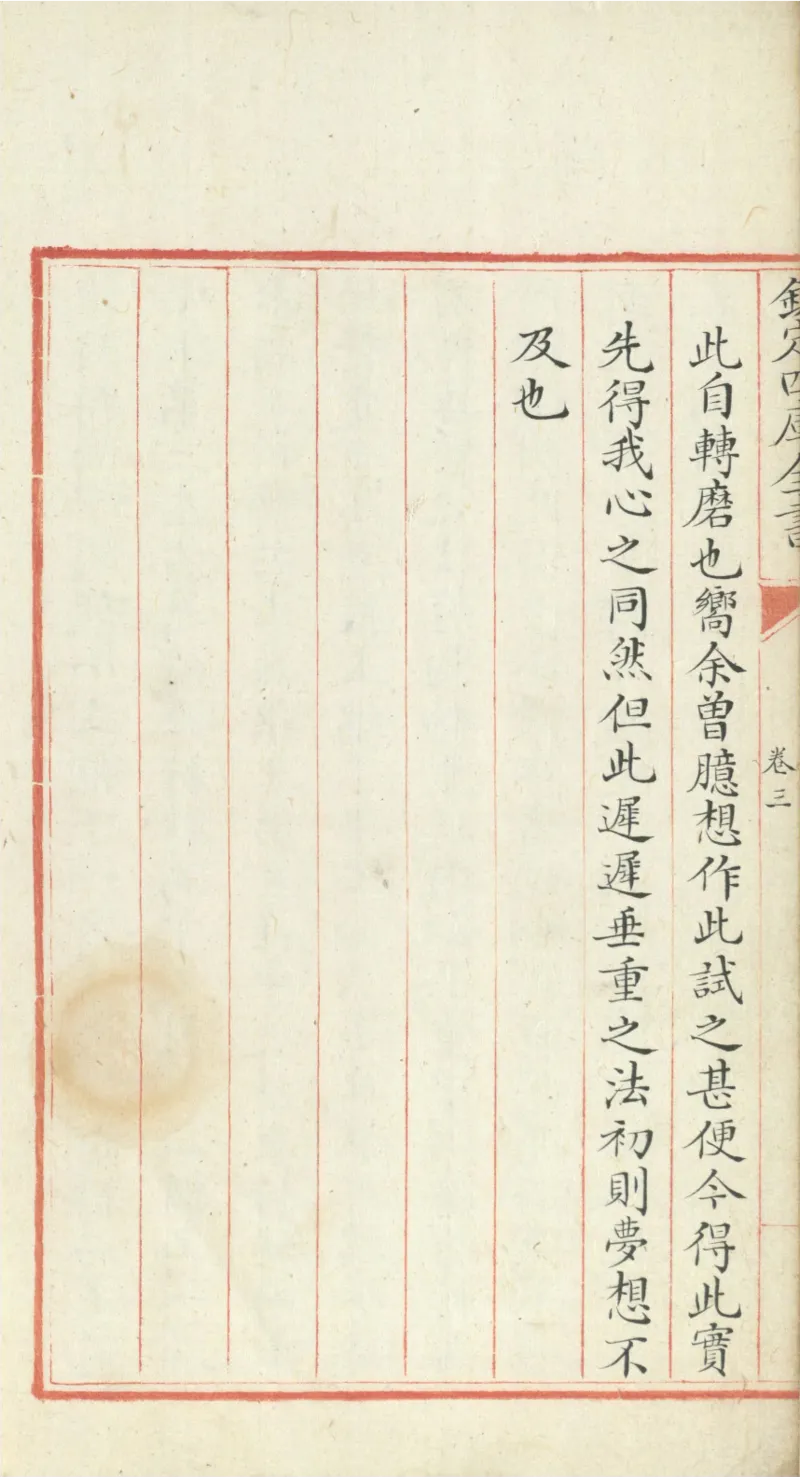 欽定四庫全書
卷三
此自轉磨也嚮余曾臆想作此試之甚便今得此實
先得我心之同然但此遲遲垂重之法初則夢想不
及也